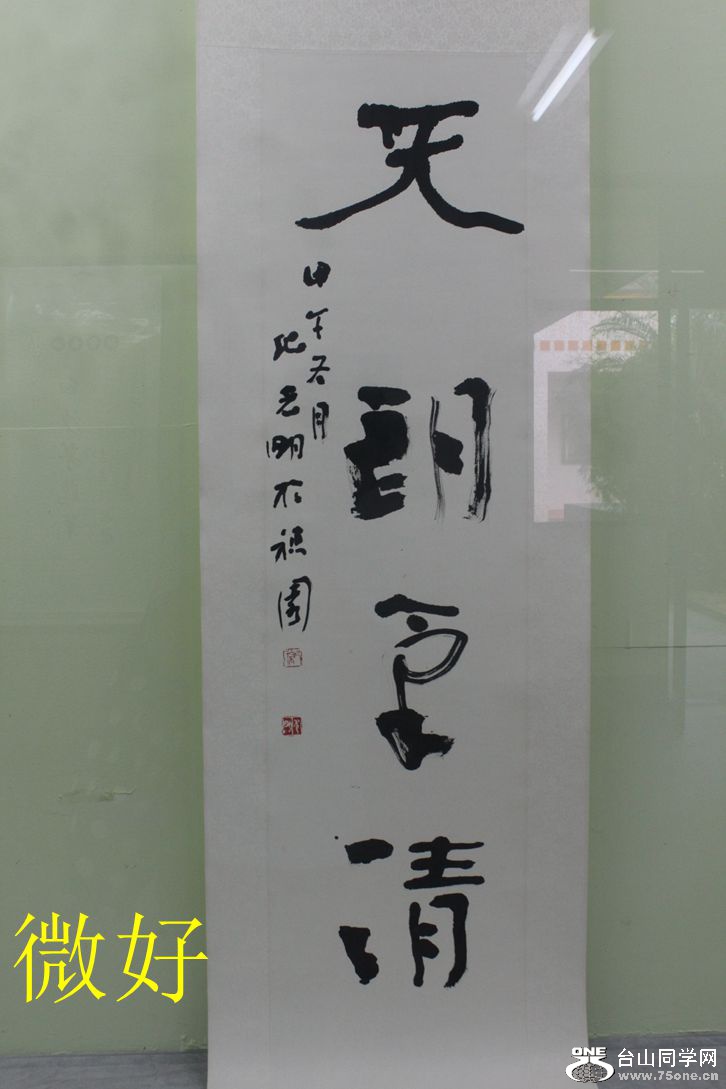 天朗氣清
甲午冬月
光明於穗園
微好
ONE
台山同学网
www.75one.cn